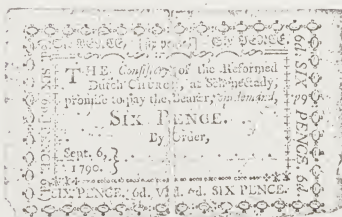 SIX PENCE.
THE Consistory of the Reformed
Dutch Church, at Schenectady,
promise to pay the Bearer, on demand,
SIX PENCE.
By Order,
Sept. 6,
1790.
SIX PENCE. 6d. VId. 6d. SIX PENCE.
6d. SIX PENCE. 6d.